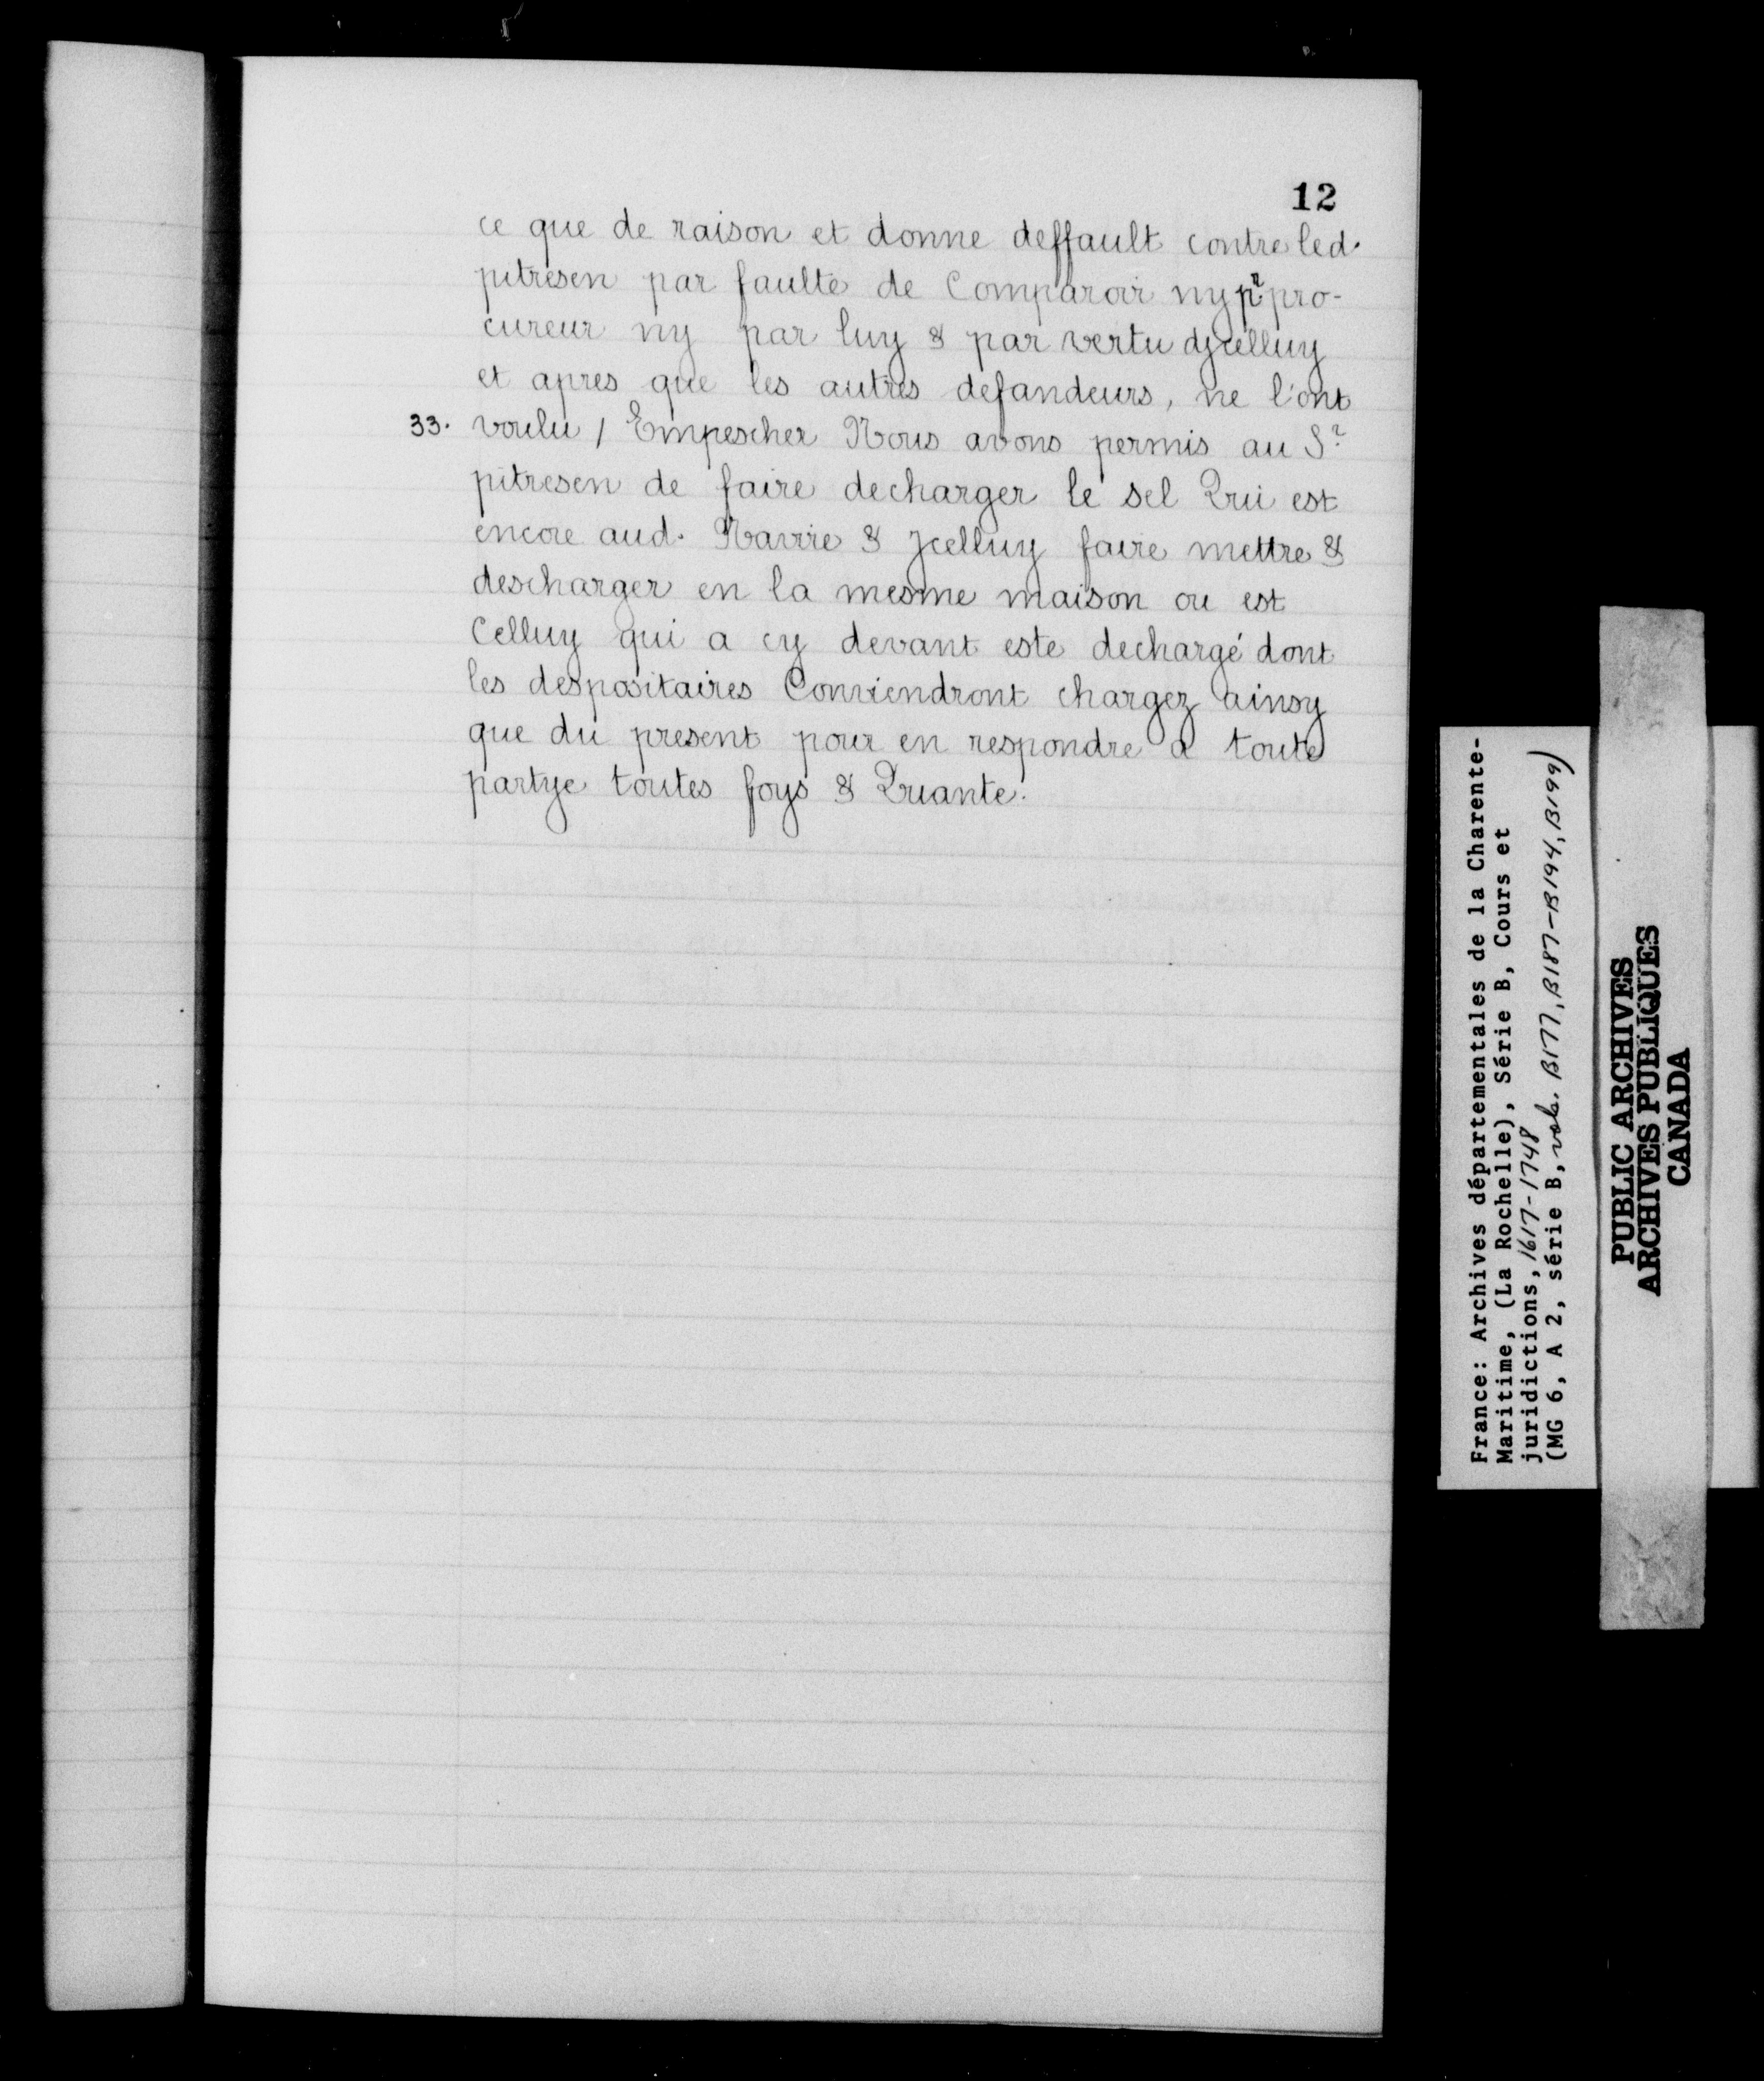 12
ce que de raison et donne deffault contre led.
pitresen par faulte de Comparoir ny pr pro-
cureur ny par luy & par vertu djcelluy
et apres que les autres defandeurs, ne l'ont
33. voulu / Empescher Nous avons permis au Sr
pitresen de faire decharger le sel Qui est
encore aud. Navire & Jcelluy faire mettre &
descharger en la mesme maison ou est
Celluy qui a cy devant este dechargé dont
les despositaires Conviendront chargez ainsy
que du present pour en respondre a toute
partye toutes foys & Quante.
France: Archives départementales de la Charente-
Maritime, (La Rochelle), Série B, Cours et
juridictions, 1617-1748
(MG 6, A 2, série B, vols. B177, B187-B194, B199)
PUBLIC ARCHIVES
ARCHIVES PUBLIQUES
CANADA